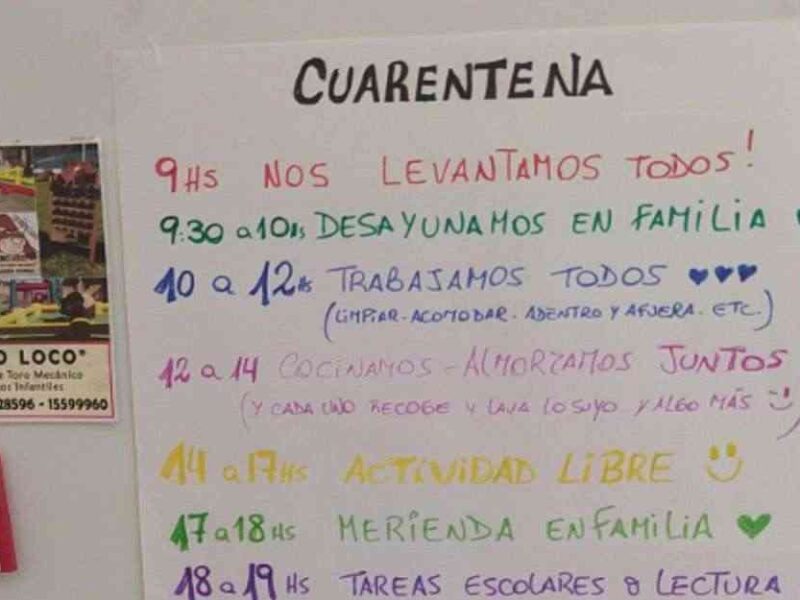 CUARENTENA
9HS NOS LEVANTAMOS TODOS!
9:30 a 10Hs DESAYUNAMOS EN FAMILIA
10 a 12Hs TRABAJAMOS TODOS
(LIMPIAR - ACOMODAR. ADENTRO Y AFUERA. ETC.)
12 a 14 COCINAMOS - ALMORZAMOS JUNTOS
(Y CADA UNO RECOGE Y LAVA LO SUYO Y ALGO MÁS
14 a 17HS ACTIVIDAD LIBRE
17 a 18HS MERIENDA EN FAMILIA
18 a 19 HS TAREAS ESCOLARES o LECTURA
O LOCO"
Toro Mecánico
os Infantiles
28596 - 15599960